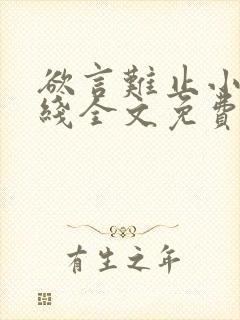 欲言難止小
綫全文免費
有生之年